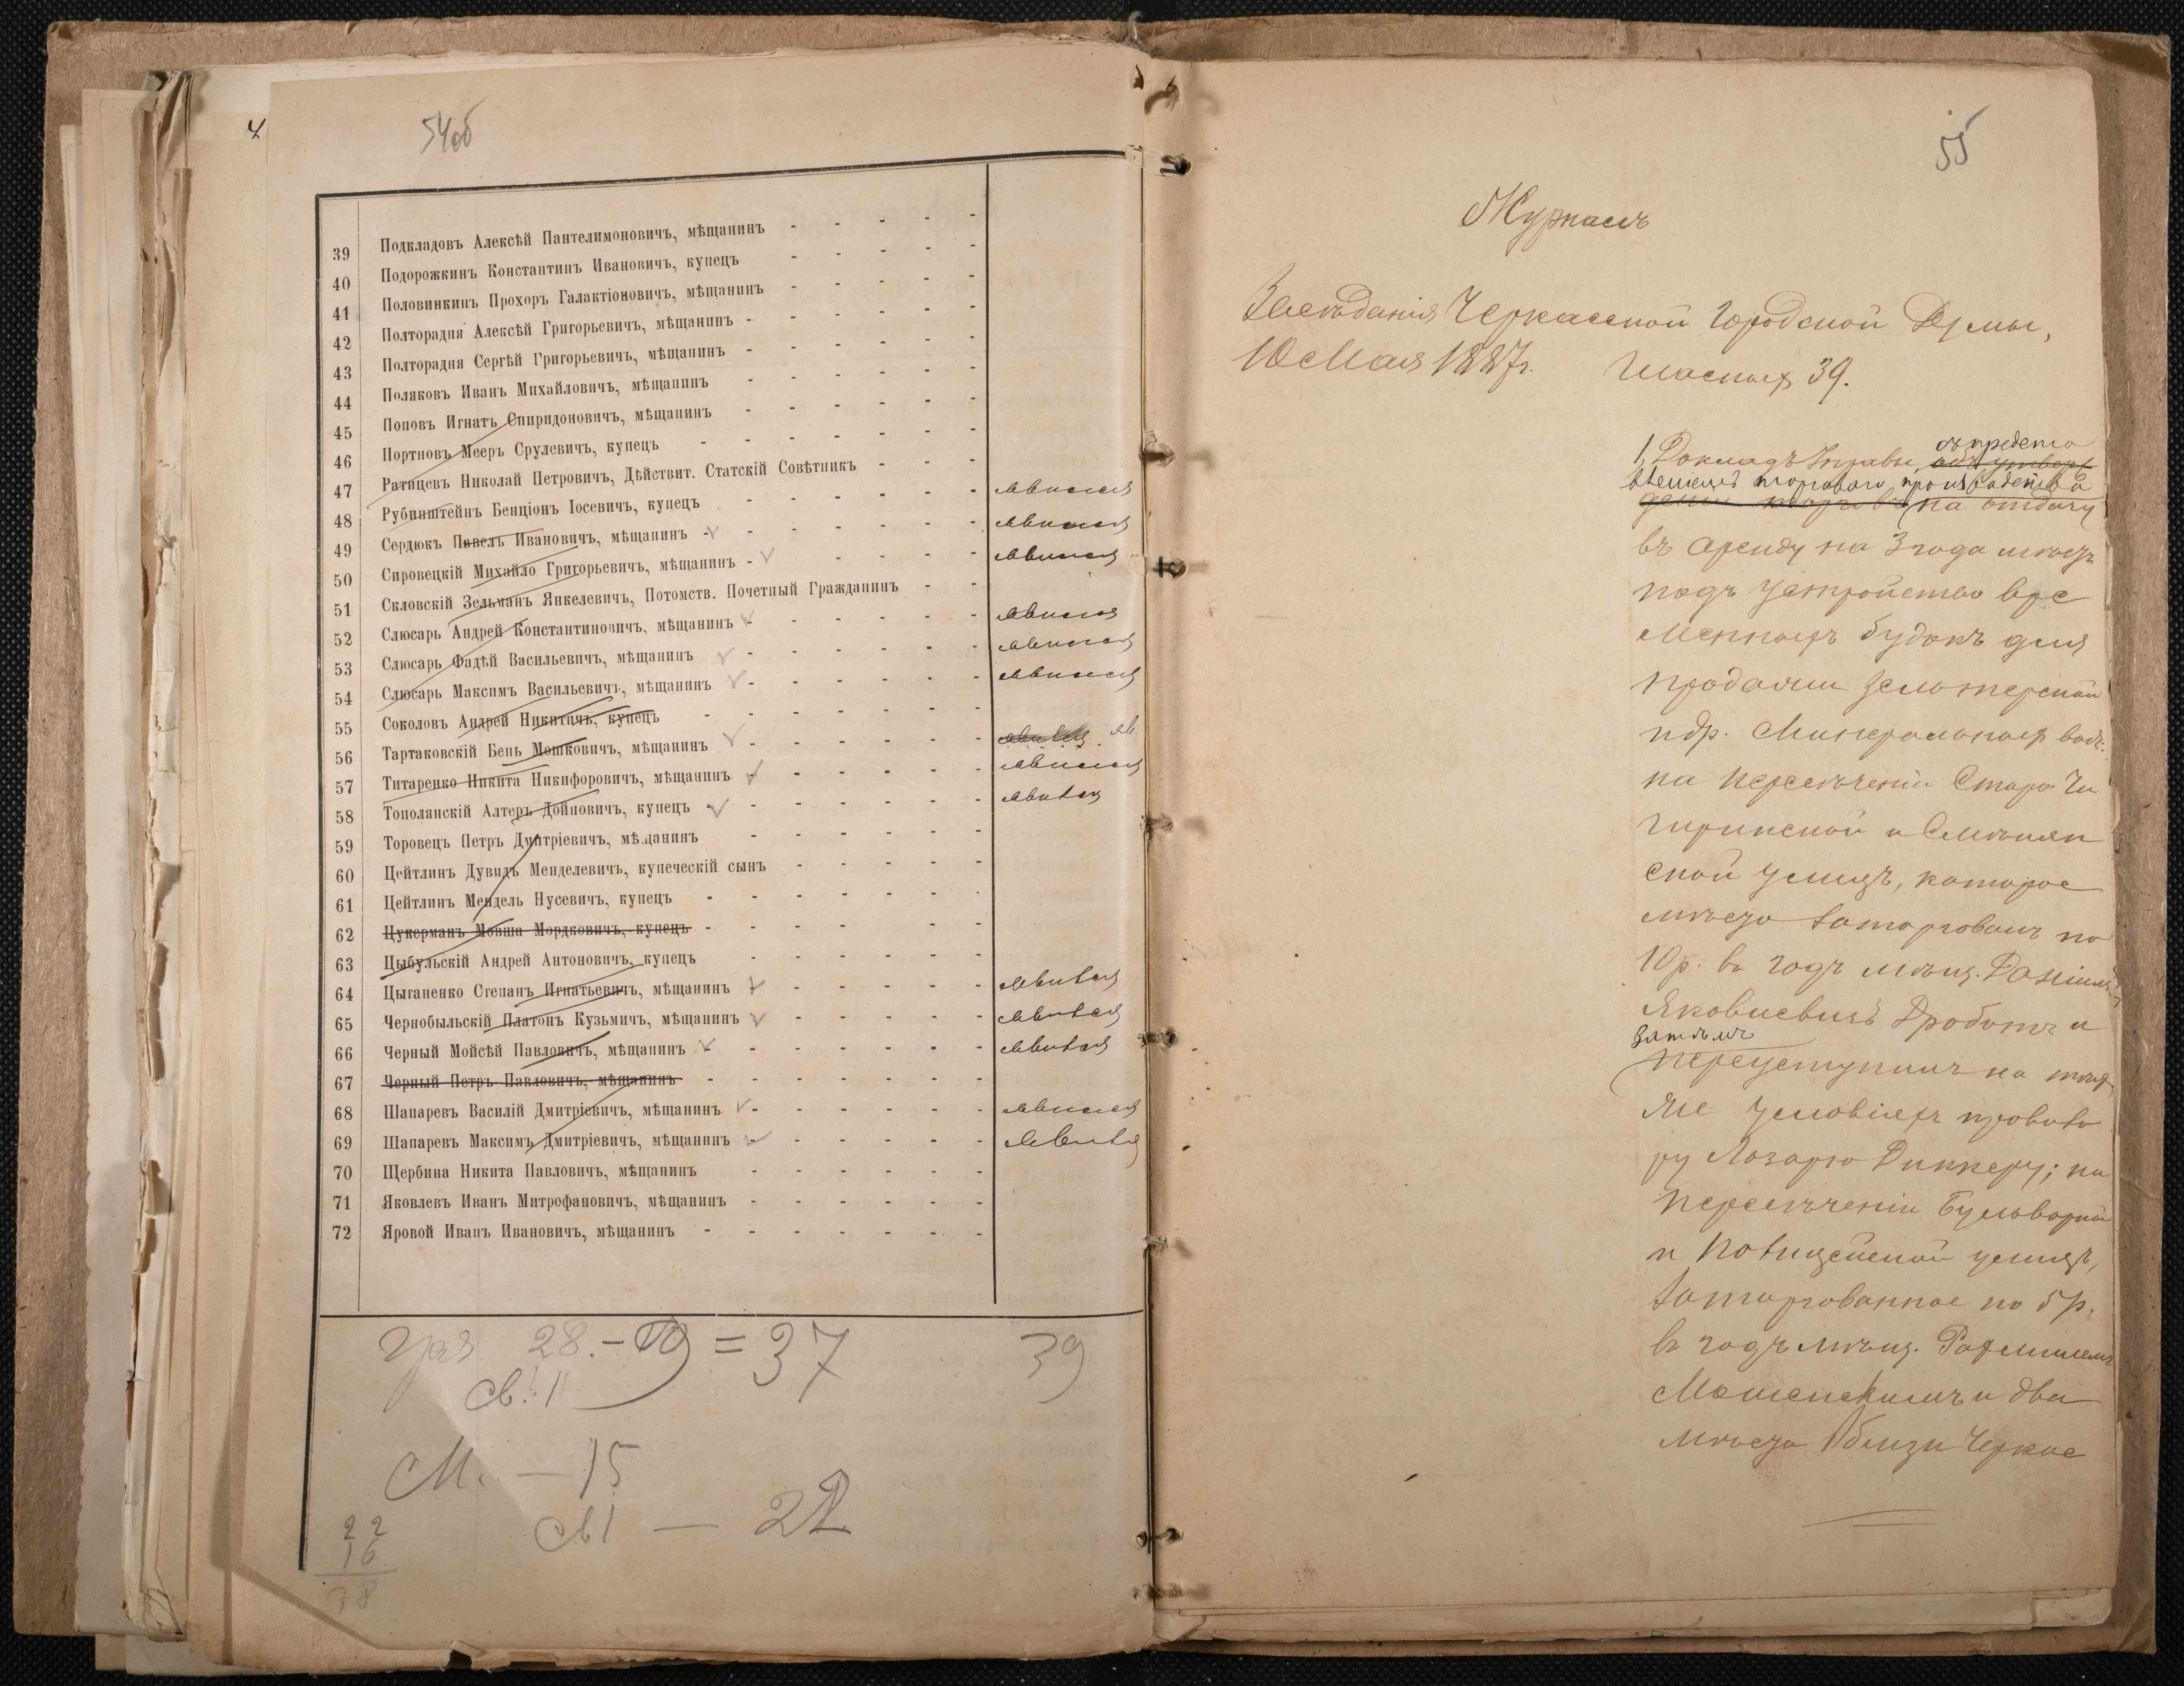 4
54об
39 Подкладовъ Алексѣй Пантелимоновичъ, мѣщанинъ - - - - -
40 Подорожкинъ Константинъ Ивановичъ, купецъ - - - - -
41 Половинкинъ Прохоръ Галактіоновичъ, мѣщанинъ - - - - -
42 Полторадня Алексѣй Григорьевичъ, мѣщанинъ - - - - - -
43 Полторадня Сергѣй Григорьевичъ, мѣщанинъ - - - - - -
44 Поляковъ Иванъ Михайловичъ, мѣщанинъ - - - - - -
45 Поповъ Игнатъ Спиридоновичъ, мѣщанинъ - - - - - -
46 Портновъ Мееръ Срулевичъ, купецъ - - - - - - -
47 Ратицевъ Николай Петровичъ, Дѣйствит. Статскій Совѣтникъ - - -
48 Рубинштейнъ Бенціонъ Іосевичъ, купецъ - - - - - - явился
49 Сердюкъ Павелъ Ивановичъ, мѣщанинъ - - - - - - - явился
50 Сировецкій Михайло Григорьевичъ, мѣщанинъ - - - - - явился
51 Скловскій Зельманъ Янкелевичъ, Потомств. Почетный Гражданинъ - -
52 Слюсарь Андрей Константиновичъ, мѣщанинъ - - - - - - явился
53 Слюсарь Фадѣй Васильевичъ, мѣщанинъ - - - - - - явился
54 Слюсарь Максимъ Васильевичъ, мѣщанинъ - - - - - - явился
55 Соколовъ Андрей Никитичъ, купецъ - - - - - - -
56 Тартаковскій Бень Мошковичъ, мѣщанинъ - - - - - - явился яв.
57 Титаренко Никита Никифоровичъ, мѣщанинъ - - - - - - явился
58 Тополянскій Алтеръ Дойновичъ, купецъ - - - - - - явился
59 Торовецъ Петръ Дмитріевичъ, мѣщанинъ - - - - - -
60 Цейтлинъ Дувидъ Менделевичъ, купеческій сынъ - - - - -
61 Цейтлинъ Мендель Нусевичъ, купецъ - - - - - - -
62 Цукерманъ Мовша Мордковичъ, купецъ - - - - - - -
63 Цыбульскій Андрей Антоновичъ, купецъ - - - - - -
64 Цыганенко Степанъ Игнатьевичъ, мѣщанинъ - - - - - - явился
65 Чернобыльскій Платонъ Кузьмичъ, мѣщанинъ - - - - - явился
66 Черный Мойсѣй Павловичъ, мѣщанинъ - - - - - - - явился
67 Черный Петръ Павловичъ, мѣщанинъ - - - - - - -
68 Шапаревъ Василій Дмитріевичъ, мѣщанинъ - - - - - - явился
69 Шапаревъ Максимъ Дмитріевичъ, мѣщанинъ - - - - - - явился
70 Щербина Никита Павловичъ, мѣщанинъ - - - - - -
71 Яковлевъ Иванъ Митрофановичъ, мѣщанинъ - - - - - -
72 Яровой Иванъ Ивановичъ, мѣщанинъ - - - - - - -
28. = 37 39
М. — 15
— 22
22
16
38
55
Журналъ
Засѣданія Черкасской Городской Думы,
10 Мая 1887г. Гласныхъ 39.
1, Докладъ Управы, съ предста
вленіемъ торговаго производства
на отдачу
въ аренду на 3 года мѣстъ
подъ устройство вре
менныхъ будокъ для
продажи зельтерской
и др. Минеральныхъ водъ:
на пересѣченіи Старо Чи
гиринской и Смѣлян
ской улицъ, которое
мѣсто заторговалъ по
10 р. въ годъ мѣщ. Даніилъ
Яковлевичъ Дроботъ и
затѣмъ
переуступилъ на тѣхъ
же условіяхъ провизо
ру Лазарю Диккеру; на
пересѣченіи Бульварной
и Полицейской улицъ,
заторгованное по 5 р.
въ годъ мѣщ.
и два
мѣста вблизи Черкас